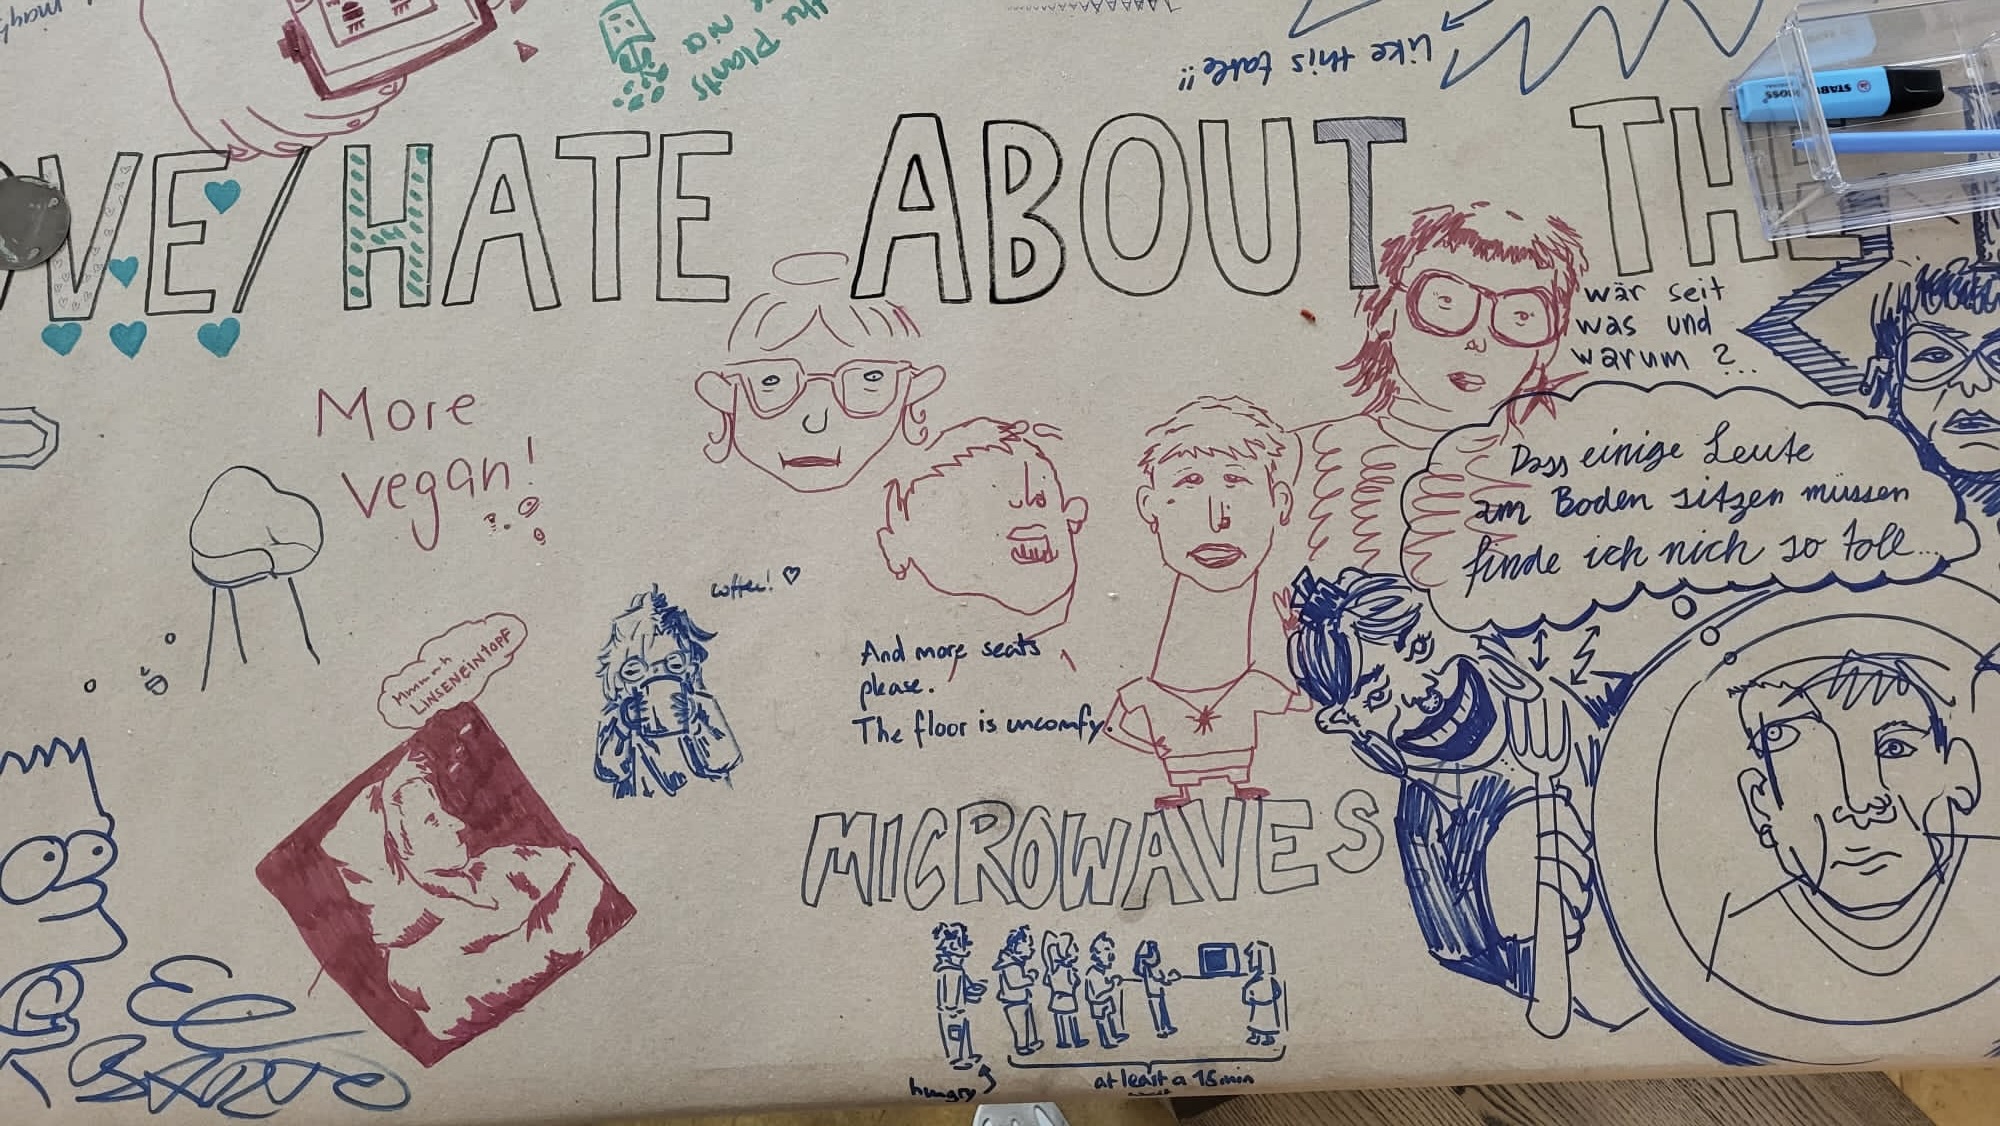 the Plants
like this table!!
STABILO BOSS
VE/HATE ABOUT THE
wär seit
was und
warum?..
More
vegan!
Dass einige Leute
am Boden sitzen müssen
finde ich nich so toll...
coffee! ♡
Mmmmh
LINSENEINTOPF
And more seats
please.
The floor is uncomfy.
MICROWAVES
El
Barto
hungry
at least a 15 min